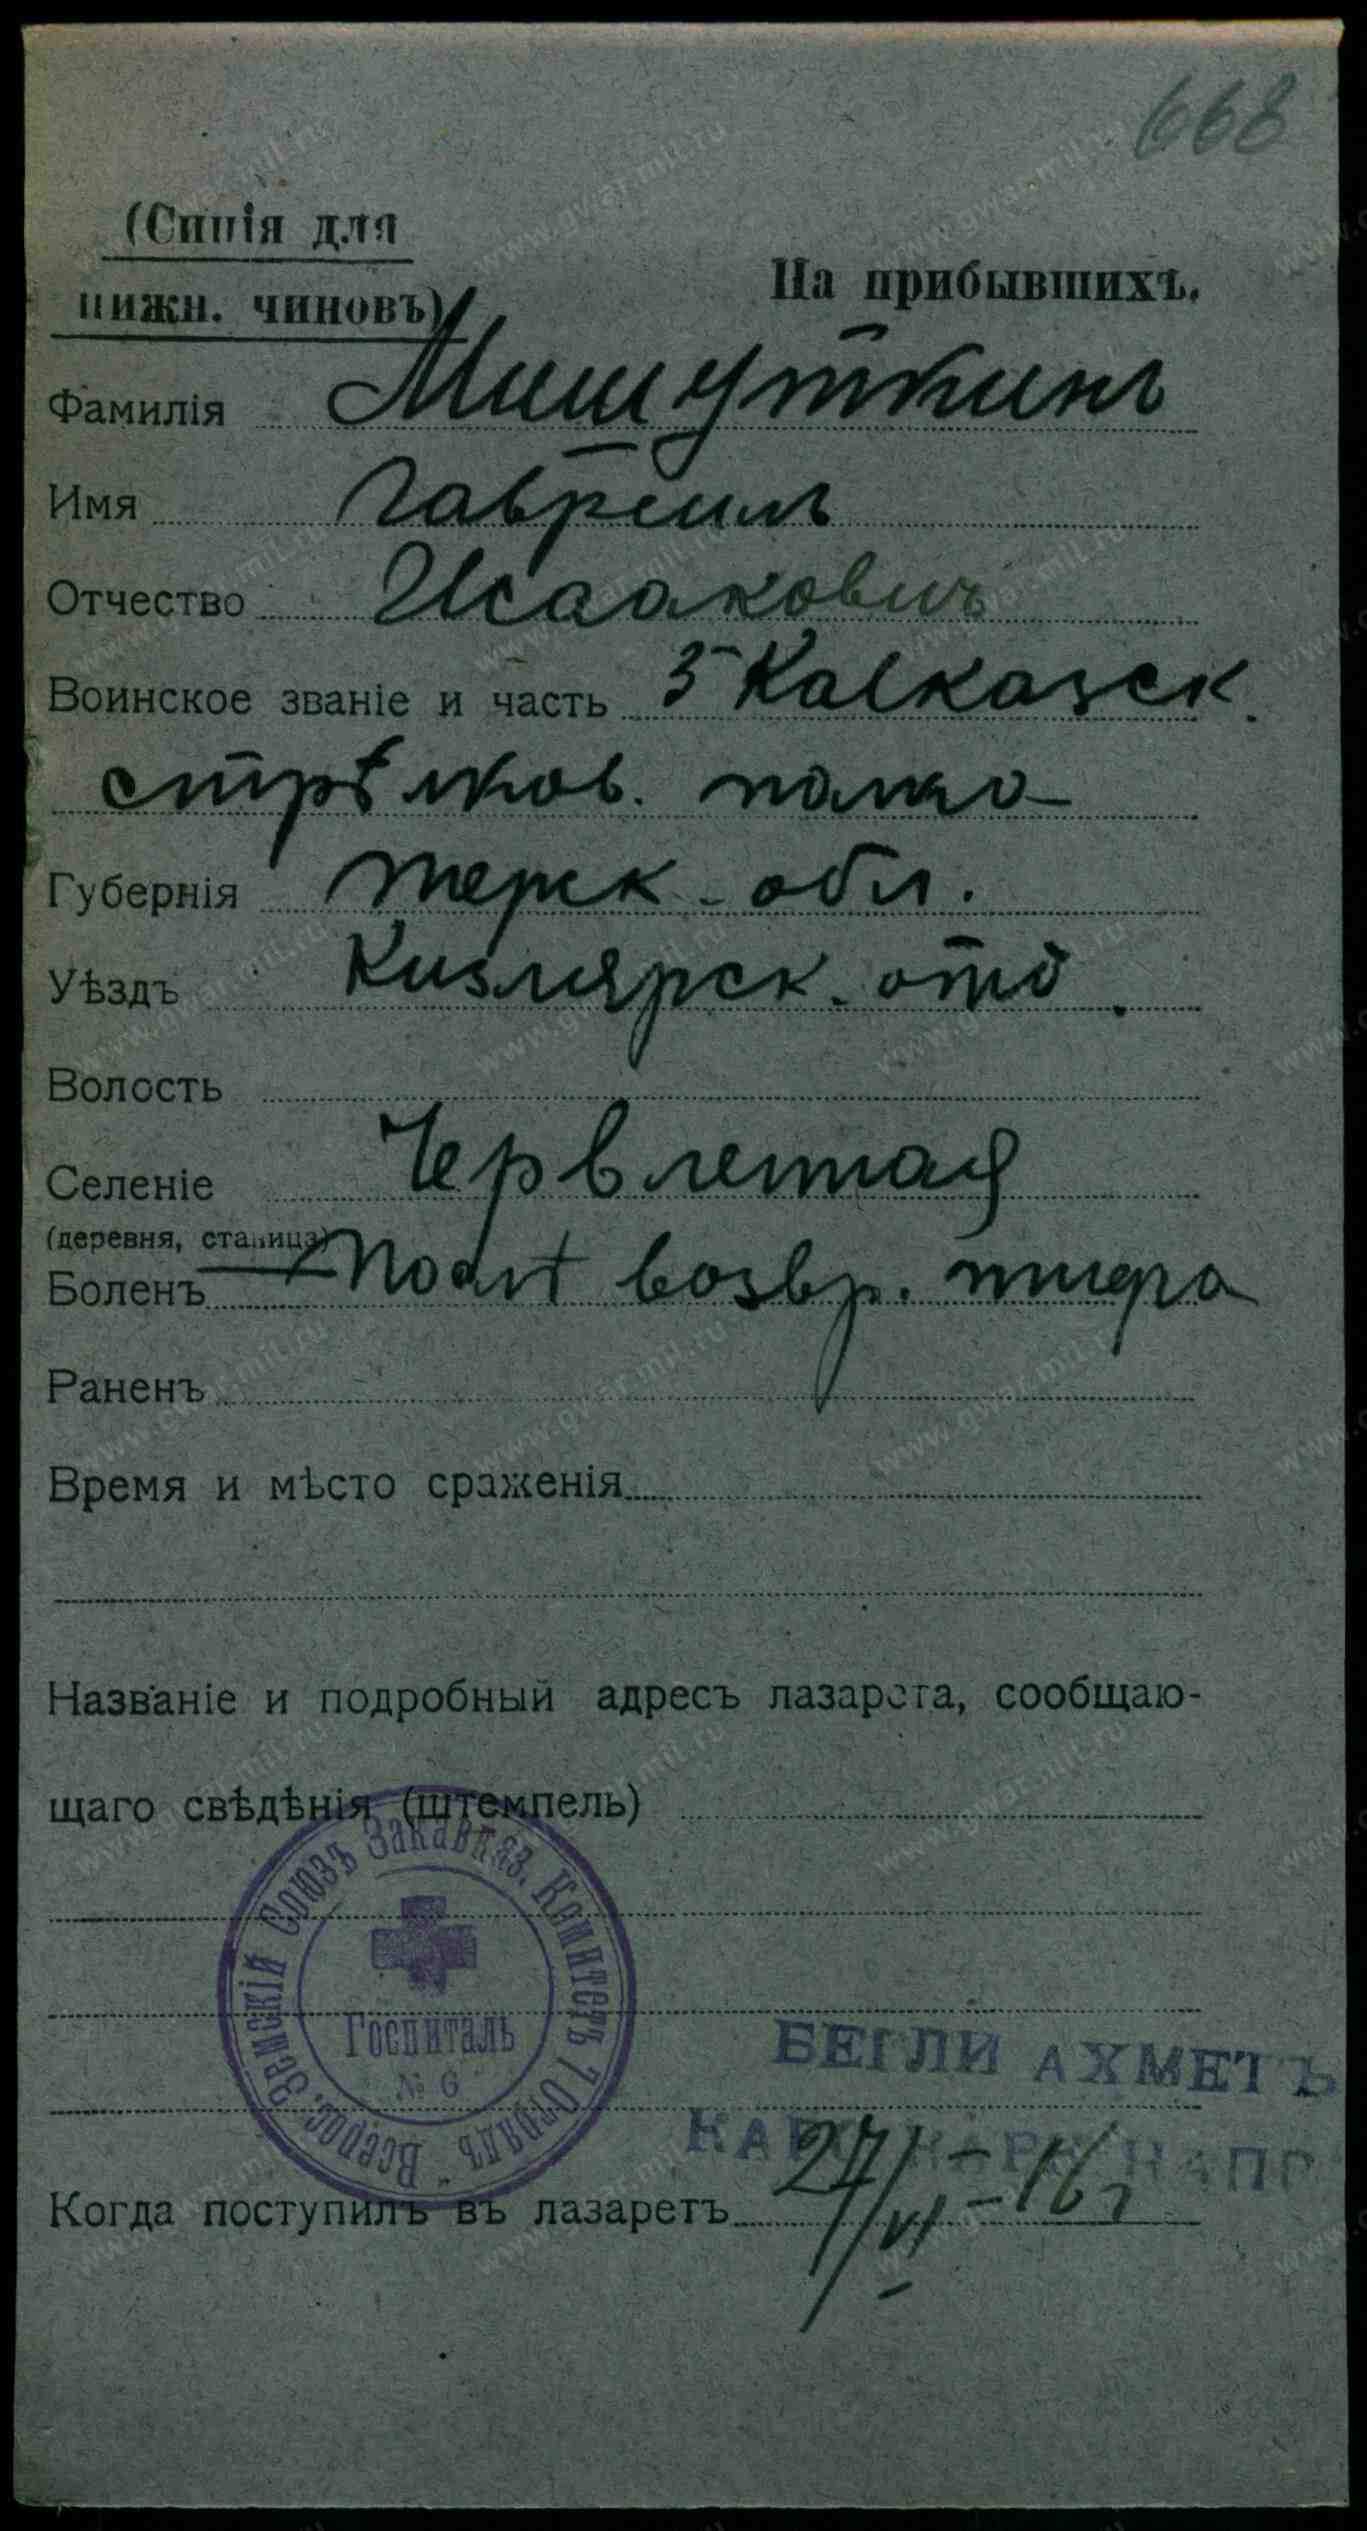 668
(Синія для
нижн. чиновъ)
На прибывшихъ.
Фамилія Мишуткинъ
Имя Гавреилъ
Отчество Исааковичъ
Воинское званіе и часть 5 Кавказск.
стрѣлков. полка
Губернія Терск. обл.
Уѣздъ Кизлярск. отд.
Волость
Селеніе Червленная
(деревня, станица)
Боленъ После возвр. тифа
Раненъ
Время и мѣсто сраженія
Названіе и подробный адресъ лазарета, сообщаю-
щаго свѣдѣнія (штемпель)
Всерос. Земскій Союзъ Закавказ. Комитетъ 7 Отрядъ
Госпиталь
№ 6
БЕГЛИ АХМЕТЪ
Когда поступилъ въ лазаретъ 27/VI-16 г